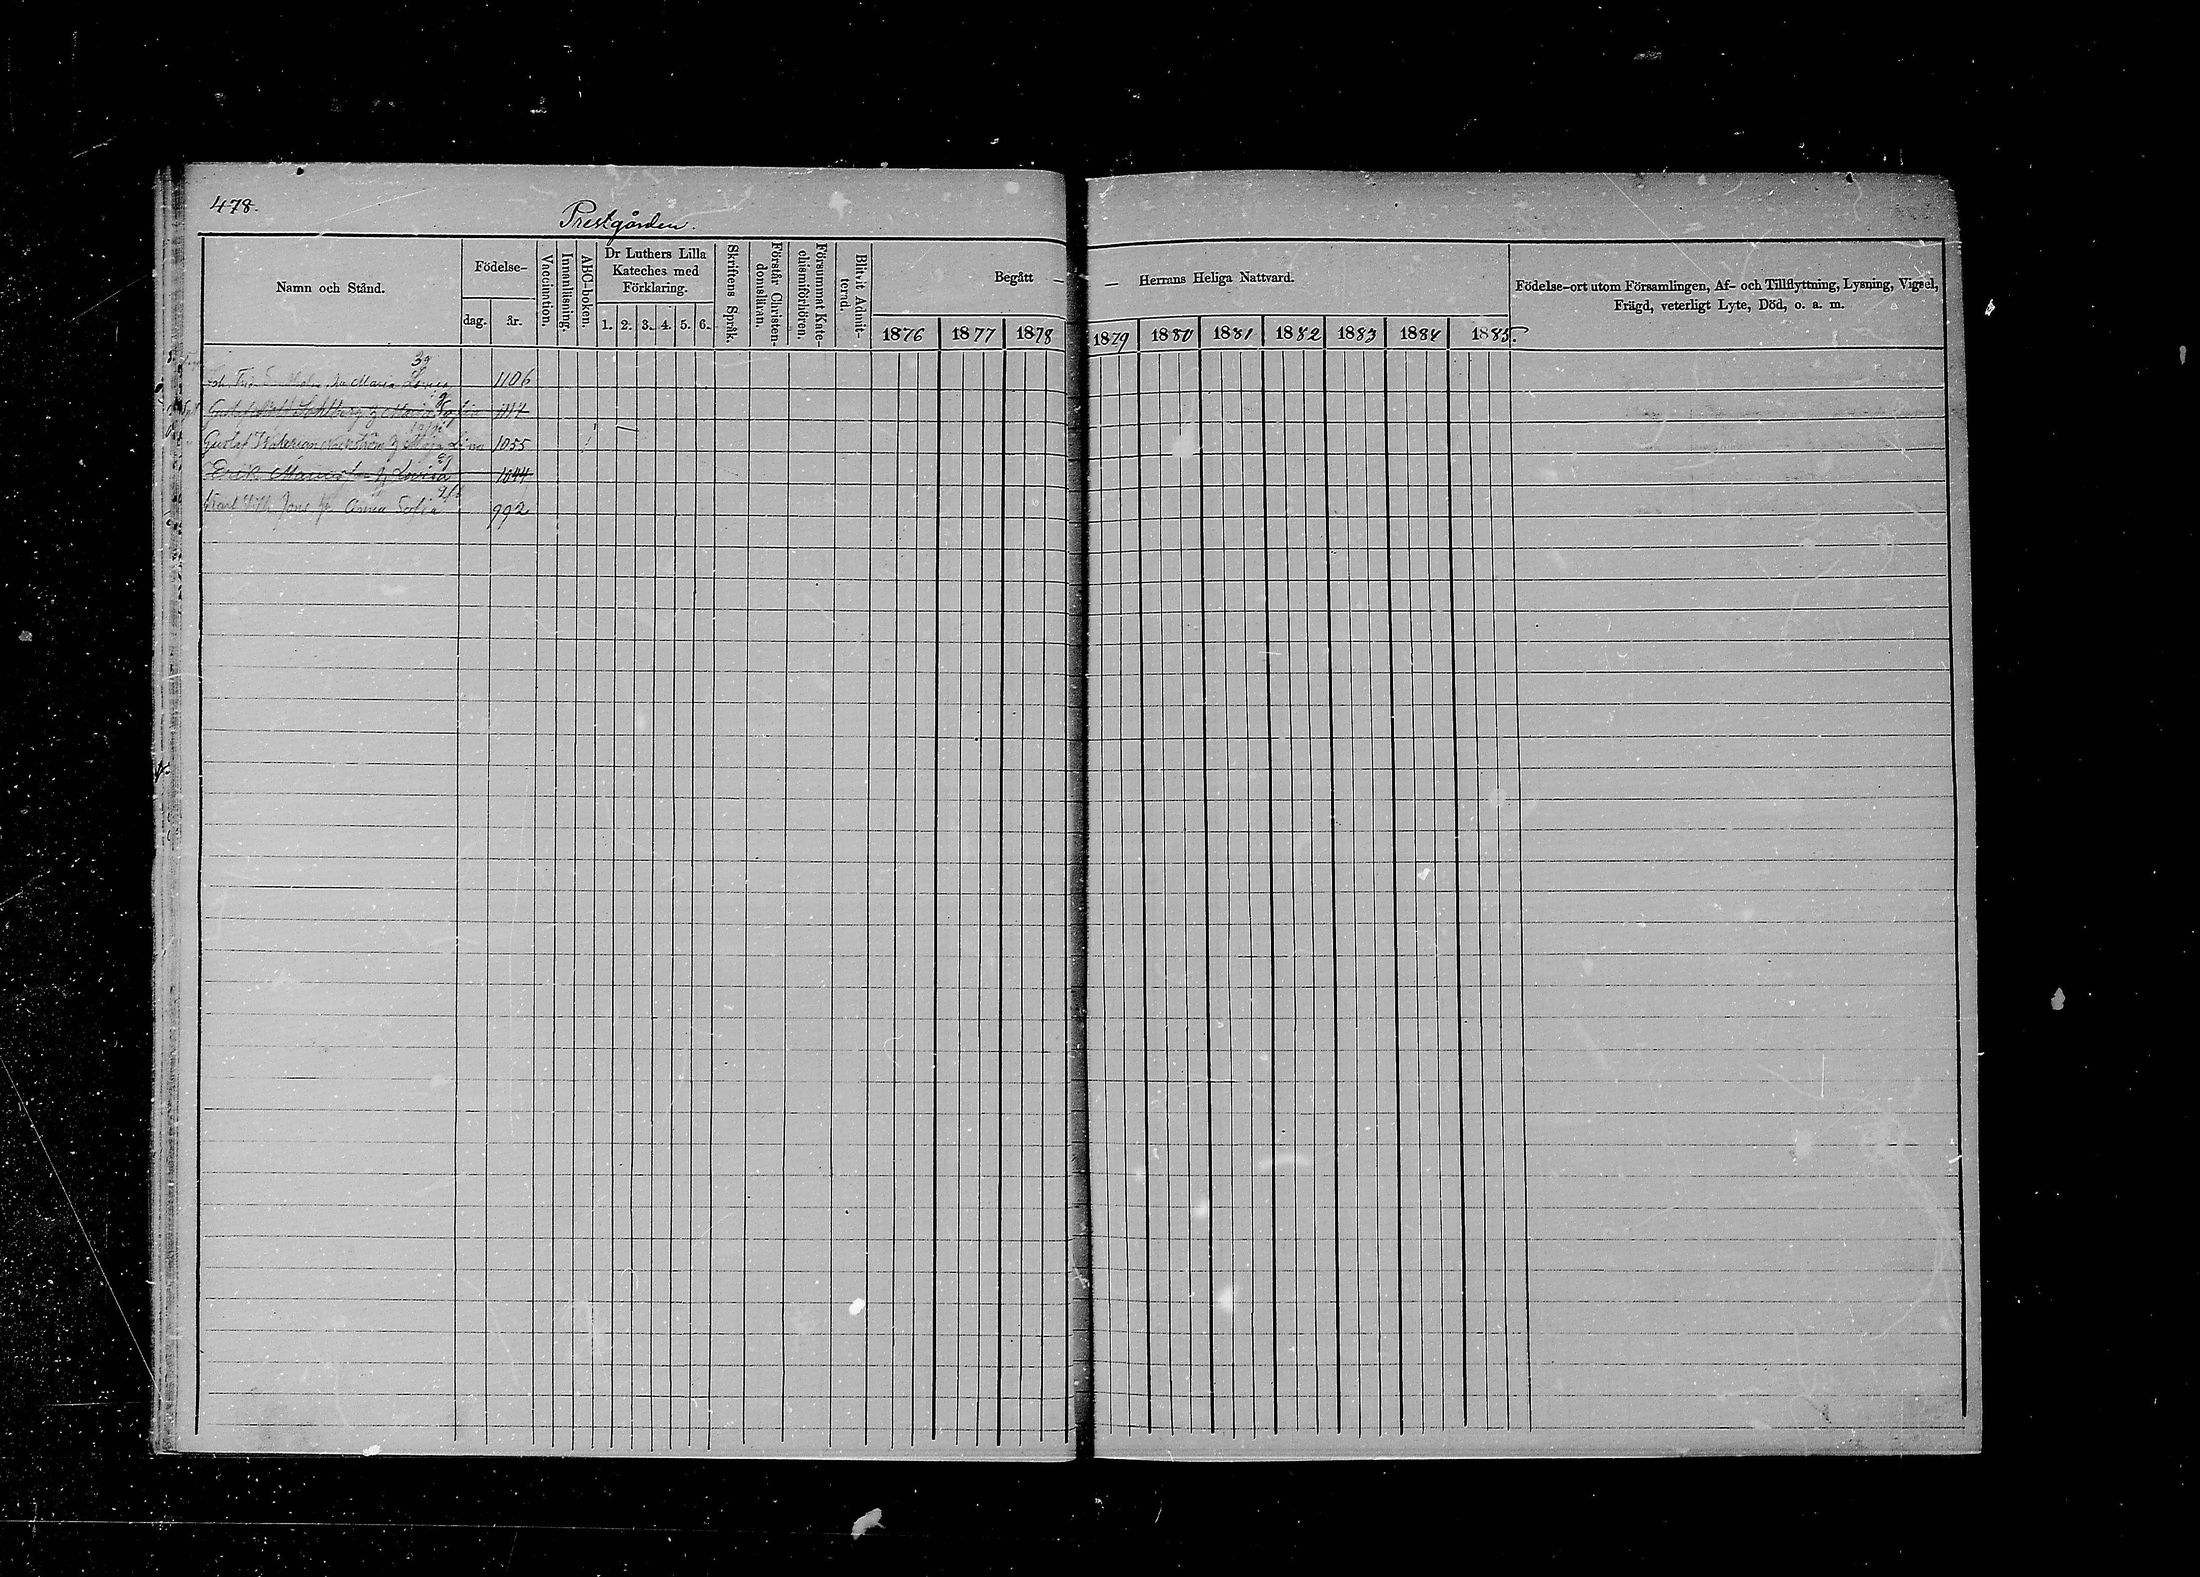 478.
Prestgården.
Namn och Stånd.
Födelse-
dag.
år.
Vaccination.
Innanläsning.
ABC-boken.
Dr Luthers Lilla
Kateches med
Förklaring.
1. 2. 3. 4. 5. 6.
Skriftens Språk.
Förstår Christen-
domsläran.
Försummat Kate-
chismiförhören.
Blifvit Admit-
terad.
Begått —
1876 1877 1878
— Herrans Heliga Nattvard.
1879 1880 1881 1882 1883 1884 1885.
Födelse-ort utom Församlingen, Af- och Tillflyttning, Lysning, Vigsel,
Frägd, veterligt Lyte, Död, o. a. m.
Maria Lovisa 1106
Maria Sofia
Gustaf 1055
Erik Lovisa 1044
Karl Anna Sofia 992